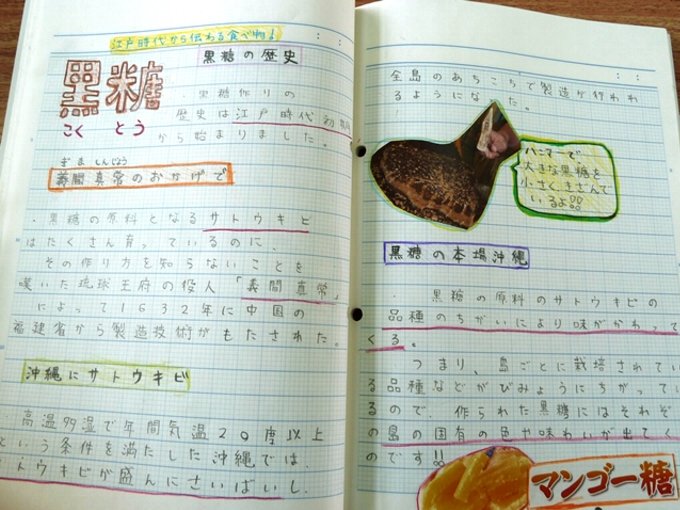 江戸時代から伝わる食べ物!
黒糖
こくとう
黒糖の歴史
・黒糖作りの
歴史は江戸時代初期
から始まりました。
ぎましんじょう
義間真常のおかげで
・黒糖の原料となるサトウキビ
はたくさん育っているのに、
その作り方を知らないことを
嘆いた琉球王府の役人「義間真常」
によって1632年に中国の
福建省から製造技術がもたされた。
沖縄にサトウキビ
・高温多湿で年間気温20度以上
という条件を満たした沖縄では、
トウキビが盛んにさいばいし、
全島のあちこちで製造が行われ
るようになった。
ハンマーで、
大きな黒糖を
小さくきざんで
いるよ!!
黒糖の本場沖縄
・黒糖の原料のサトウキビの
品種のちがいにより味がかわって
くる。
つまり、島ごとに栽培されてい
る品種などがびみょうにちがってい
るので、作られた黒糖にはそれぞ
の島の固有の色や味わいが出てく
のです!!
マンゴー糖